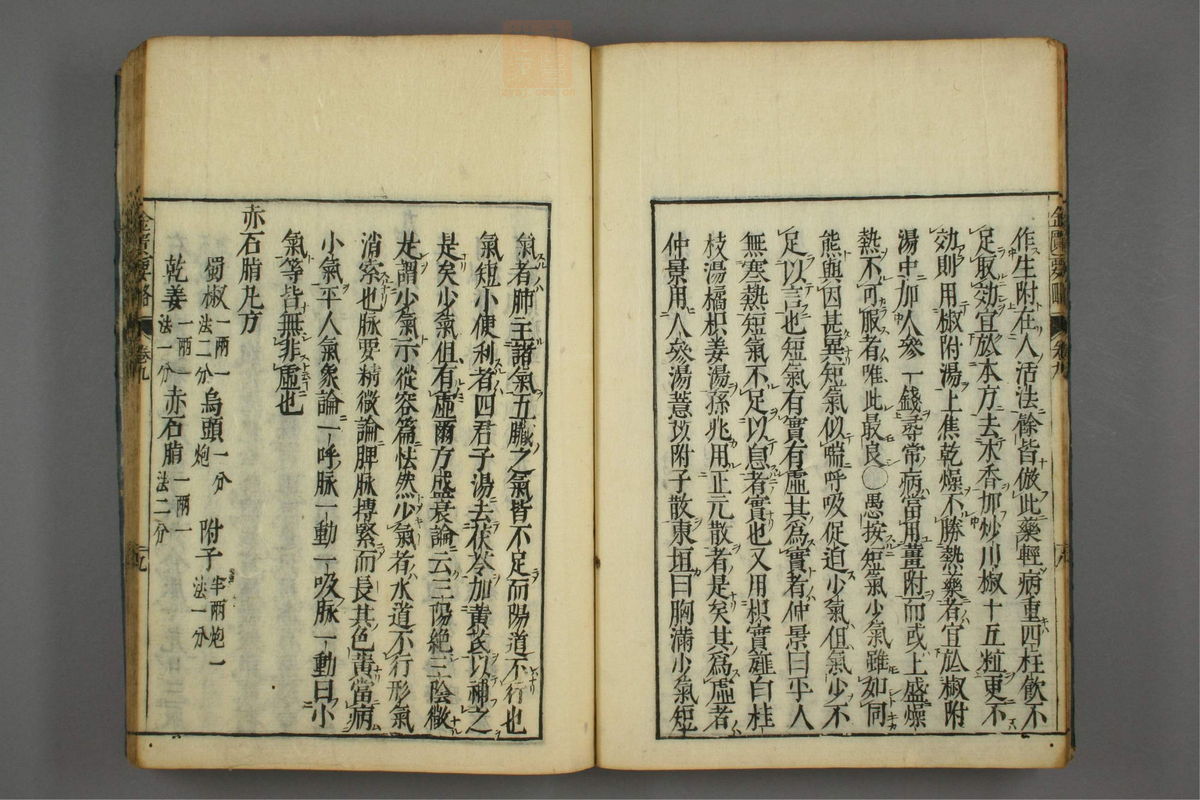 作生附在人活法餘皆倣此藥輕病重四柱飲不
足取効宜於本方去木香加炒川椒十五粒更不
効則用椒附湯上焦乾燥不勝熱藥者宜於椒附
湯中加人參一錢尋常病當用薑附而或上盛燥
熱不可服者唯此最良○愚按短氣少氣雖如同
熊與因甚異短氣似喘呼吸促迫少氣但氣少不
足以言也短氣有實有虛其為實者仲景曰平人
無寒熱短氣不足以息者實也又用枳實薤白桂
枝湯橘枳姜湯孫兆用正元散者是矣其為虛者
仲景用人參湯薏苡附子散東垣曰胸滿少氣短
氣者肺主諸氣五臟之氣皆不足而陽道不行也
氣短小便利者四君子湯去茯苓加黃芪以補之
是矣少氣但有虛爾方盛衰論云三陽絕三陰微
是謂少氣示從容篇怯然少氣者水道不行形氣
消索也脉要精微論脾脉搏緊而長其色黃當病
少氣平人氣象論一呼脉一動一吸脉一動曰少
氣等皆無非虛也
赤石脂丸方
蜀椒一兩一法二分 烏頭一分炮 附子半兩炮一法一分
乾姜一兩一法一分 赤石脂一兩一法二分
金匱要略 卷九